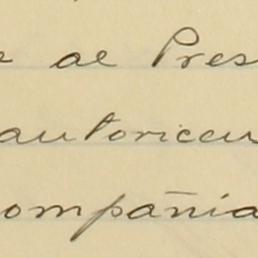 al Pres
autoricen
compañia